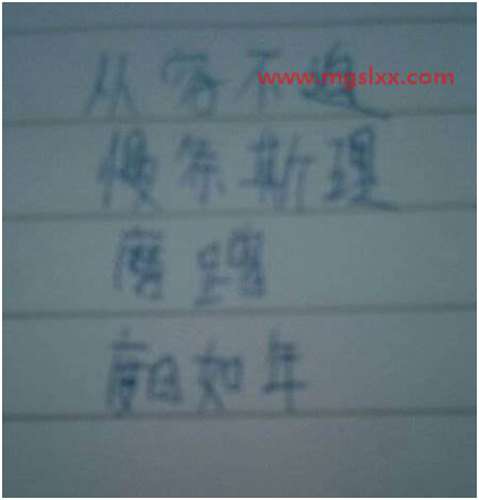 从容不迫
www.mgslxx.com
慢条斯理
磨蹭
度日如年